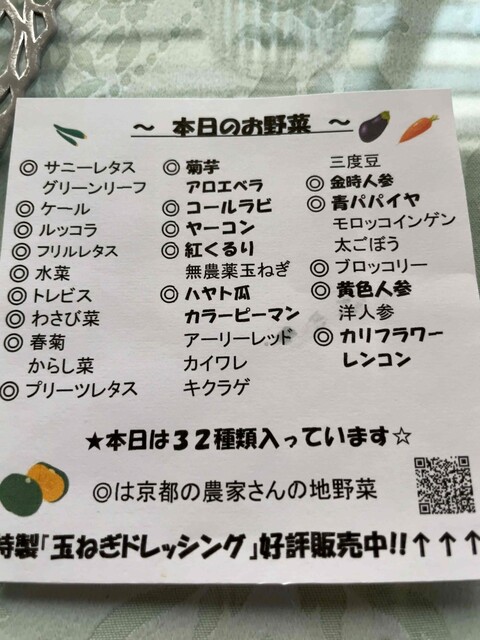 ～ 本日のお野菜 ～
◎ サニーレタス
グリーンリーフ
◎ ケール
◎ ルッコラ
◎ フリルレタス
◎ 水菜
◎ トレビス
◎ わさび菜
◎ 春菊
からし菜
◎ プリーツレタス
◎ 菊芋
アロエベラ
◎ コールラビ
◎ ヤーコン
◎ 紅くるり
無農薬玉ねぎ
◎ ハヤト瓜
カラーピーマン
アーリーレッド
カイワレ
キクラゲ
三度豆
◎ 金時人参
◎ 青パパイヤ
モロッコインゲン
太ごぼう
◎ ブロッコリー
◎ 黄色人参
洋人参
◎ カリフラワー
レンコン
★本日は３２種類入っています☆
◎は京都の農家さんの地野菜
特製「玉ねぎドレッシング」好評販売中!!↑↑↑